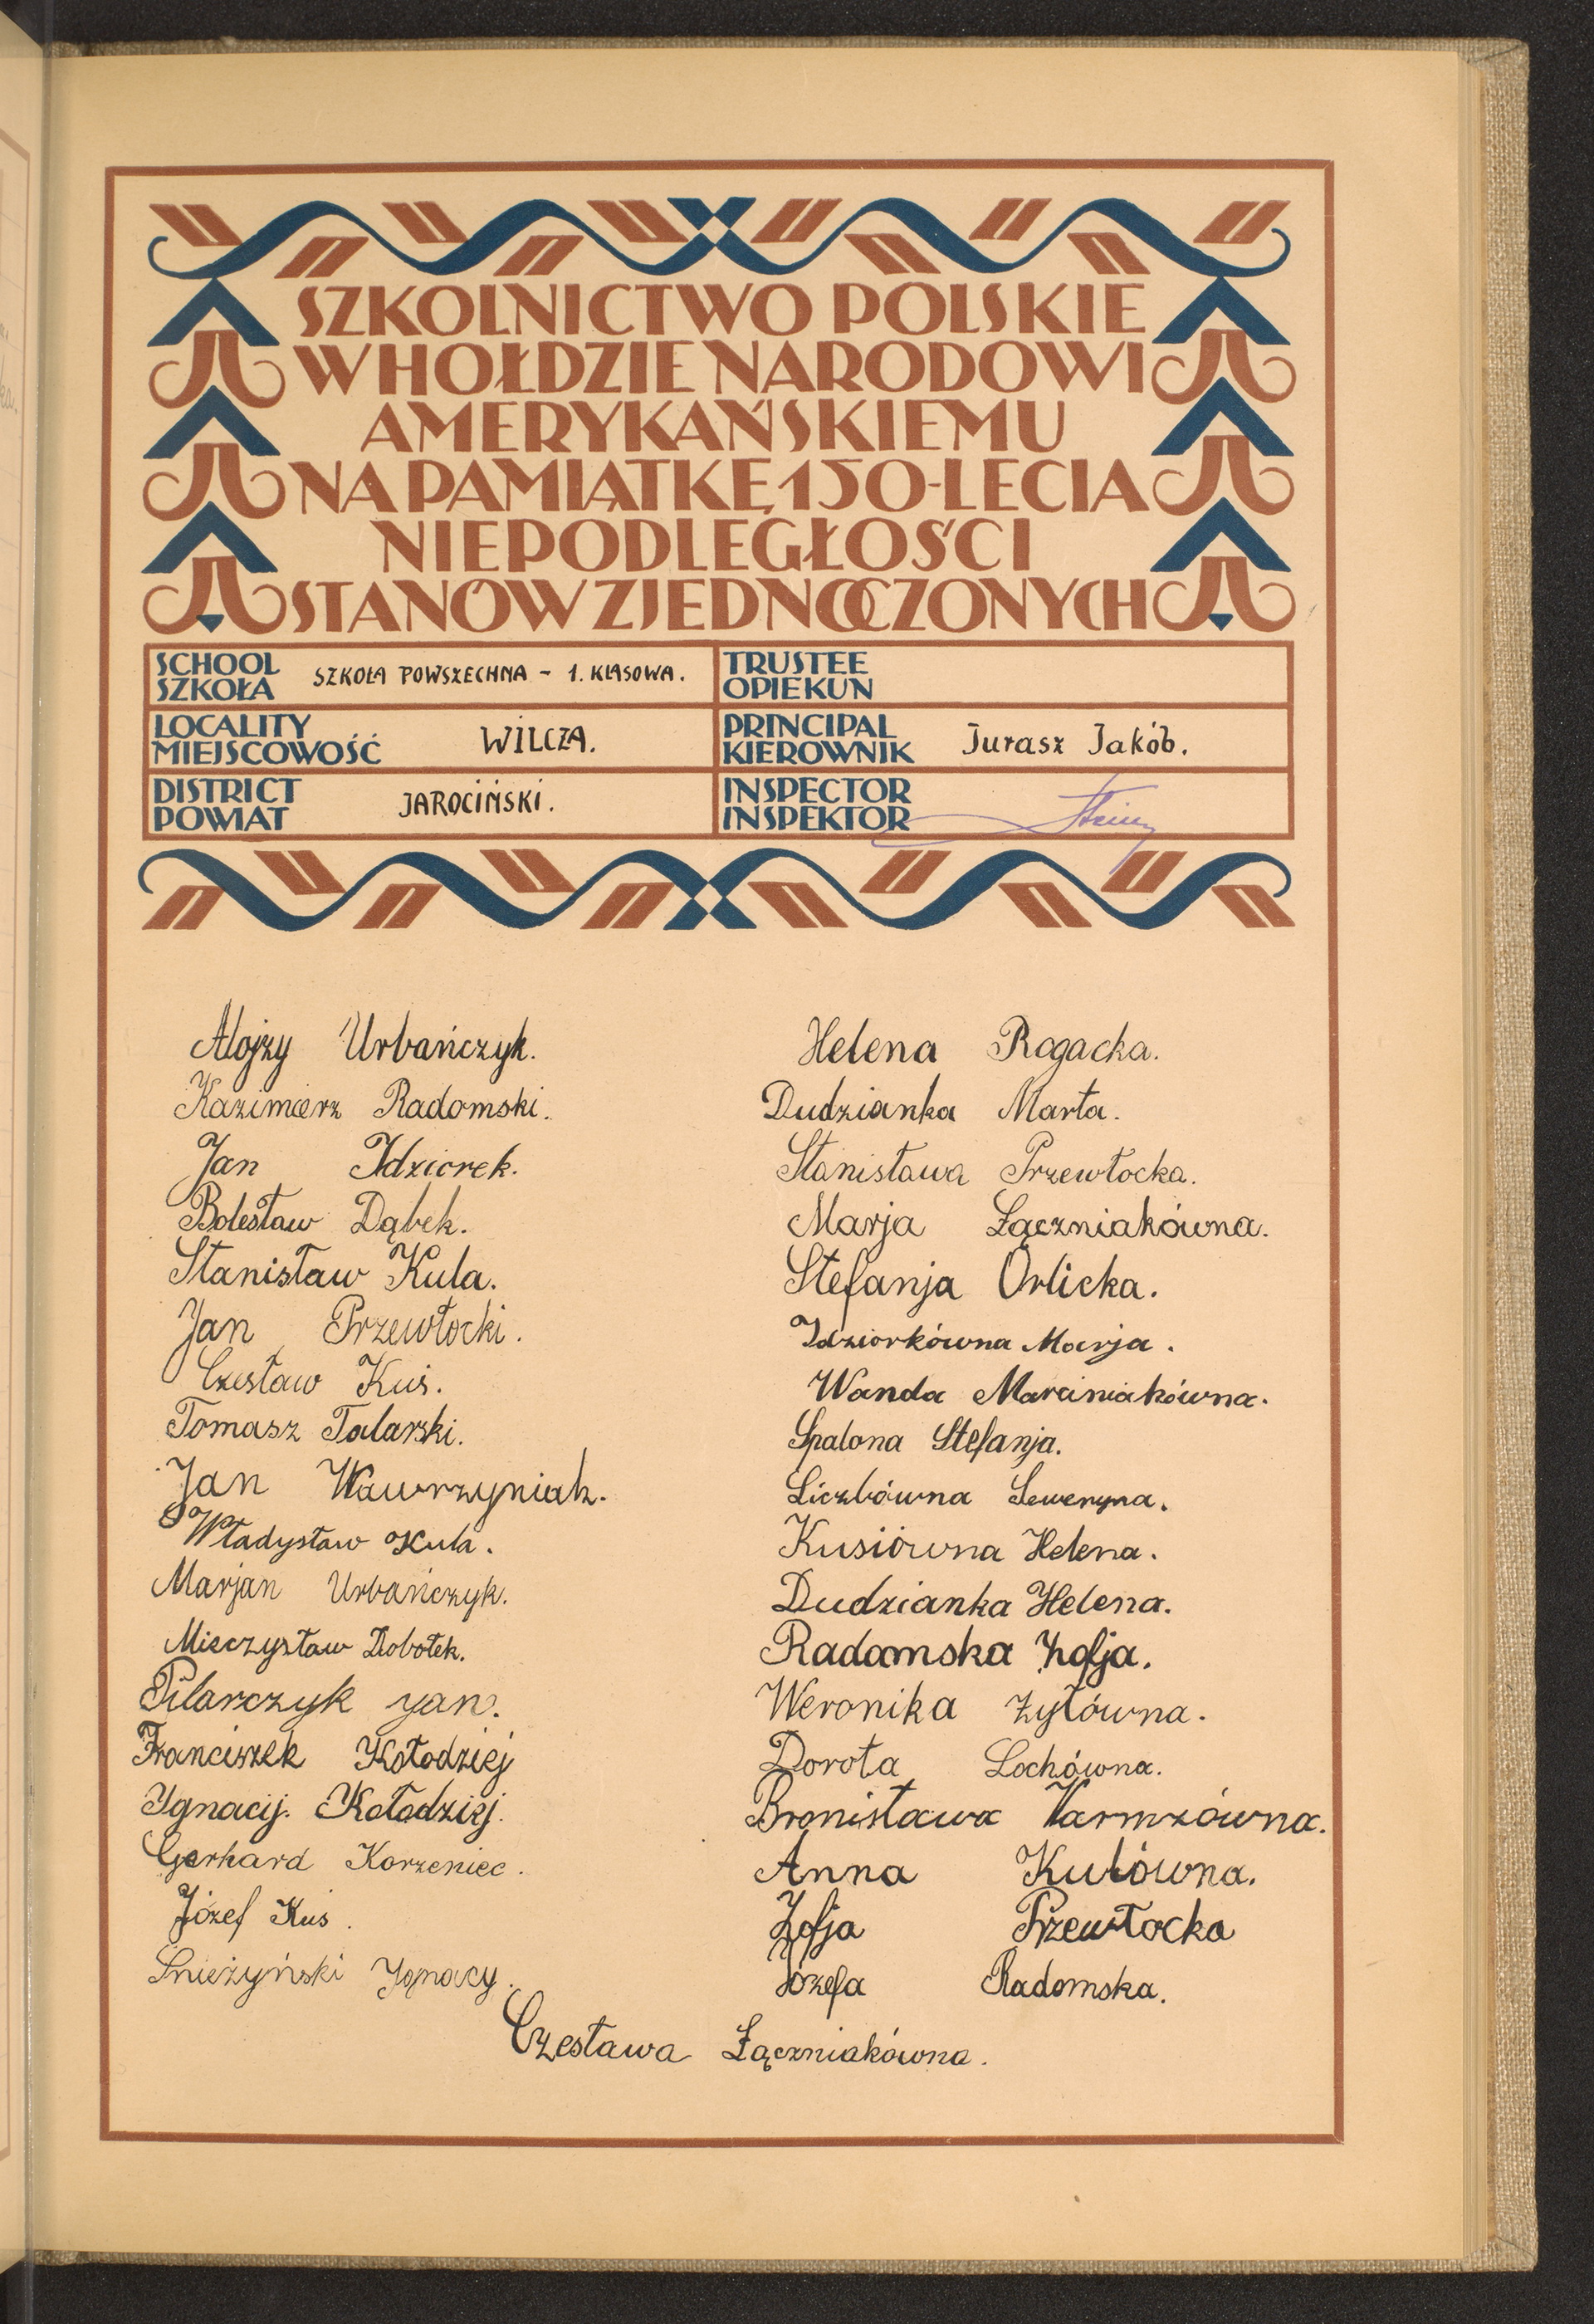 SZKOLNICTWO POLSKIE
W HOŁDZIE NARODOWI
AMERYKAŃSKIEMU
NA PAMIĄTKĘ 150-LECIA
NIEPODLEGŁOŚCI
STANÓW ZJEDNOCZONYCH
SCHOOL
SZKOŁA
SZKOŁA POWSZECHNA - 1. KLASOWA.
TRUSTEE
OPIEKUN
LOCALITY
MIEJSCOWOŚĆ
WILCZA.
PRINCIPAL
KIEROWNIK
Jurasz Jakób.
DISTRICT
POWIAT
JAROCIŃSKI.
INSPECTOR
INSPEKTOR
Alojzy Urbańczyk.
Kazimierz Radomski.
Jan Idziorek.
Bolesław Dąbek.
Stanisław Kula.
Jan Przewłocki.
Czesław Kuś.
Tomasz Talarski.
Jan Wawrzyniak.
Władysław Kula.
Marjan Urbańczyk.
Mieczysław
Pilarczyk Jan.
Franciszek Kołodziej
Ignacij. Kołodziej.
Gerhard Korzeniec.
Józef Kuś.
Śnieżyński Ignacy.
Helena Rogacka.
Dudzianka Marta.
Stanisława Przewłocka.
Marja Łączniakówna.
Stefanja Orlicka.
Idziorkówna Marja.
Wanda Marciniakówna.
Spalona Stefanja.
Liczbówna Seweryna.
Kusiówna Helena.
Dudzianka Helena.
Radomska Zofja.
Weronika Żyłówna.
Dorota Lochówna.
Bronisława
Anna Kulówna.
Zofja Przewłocka
Józefa Radomska.
Czesława Łączniakówna.